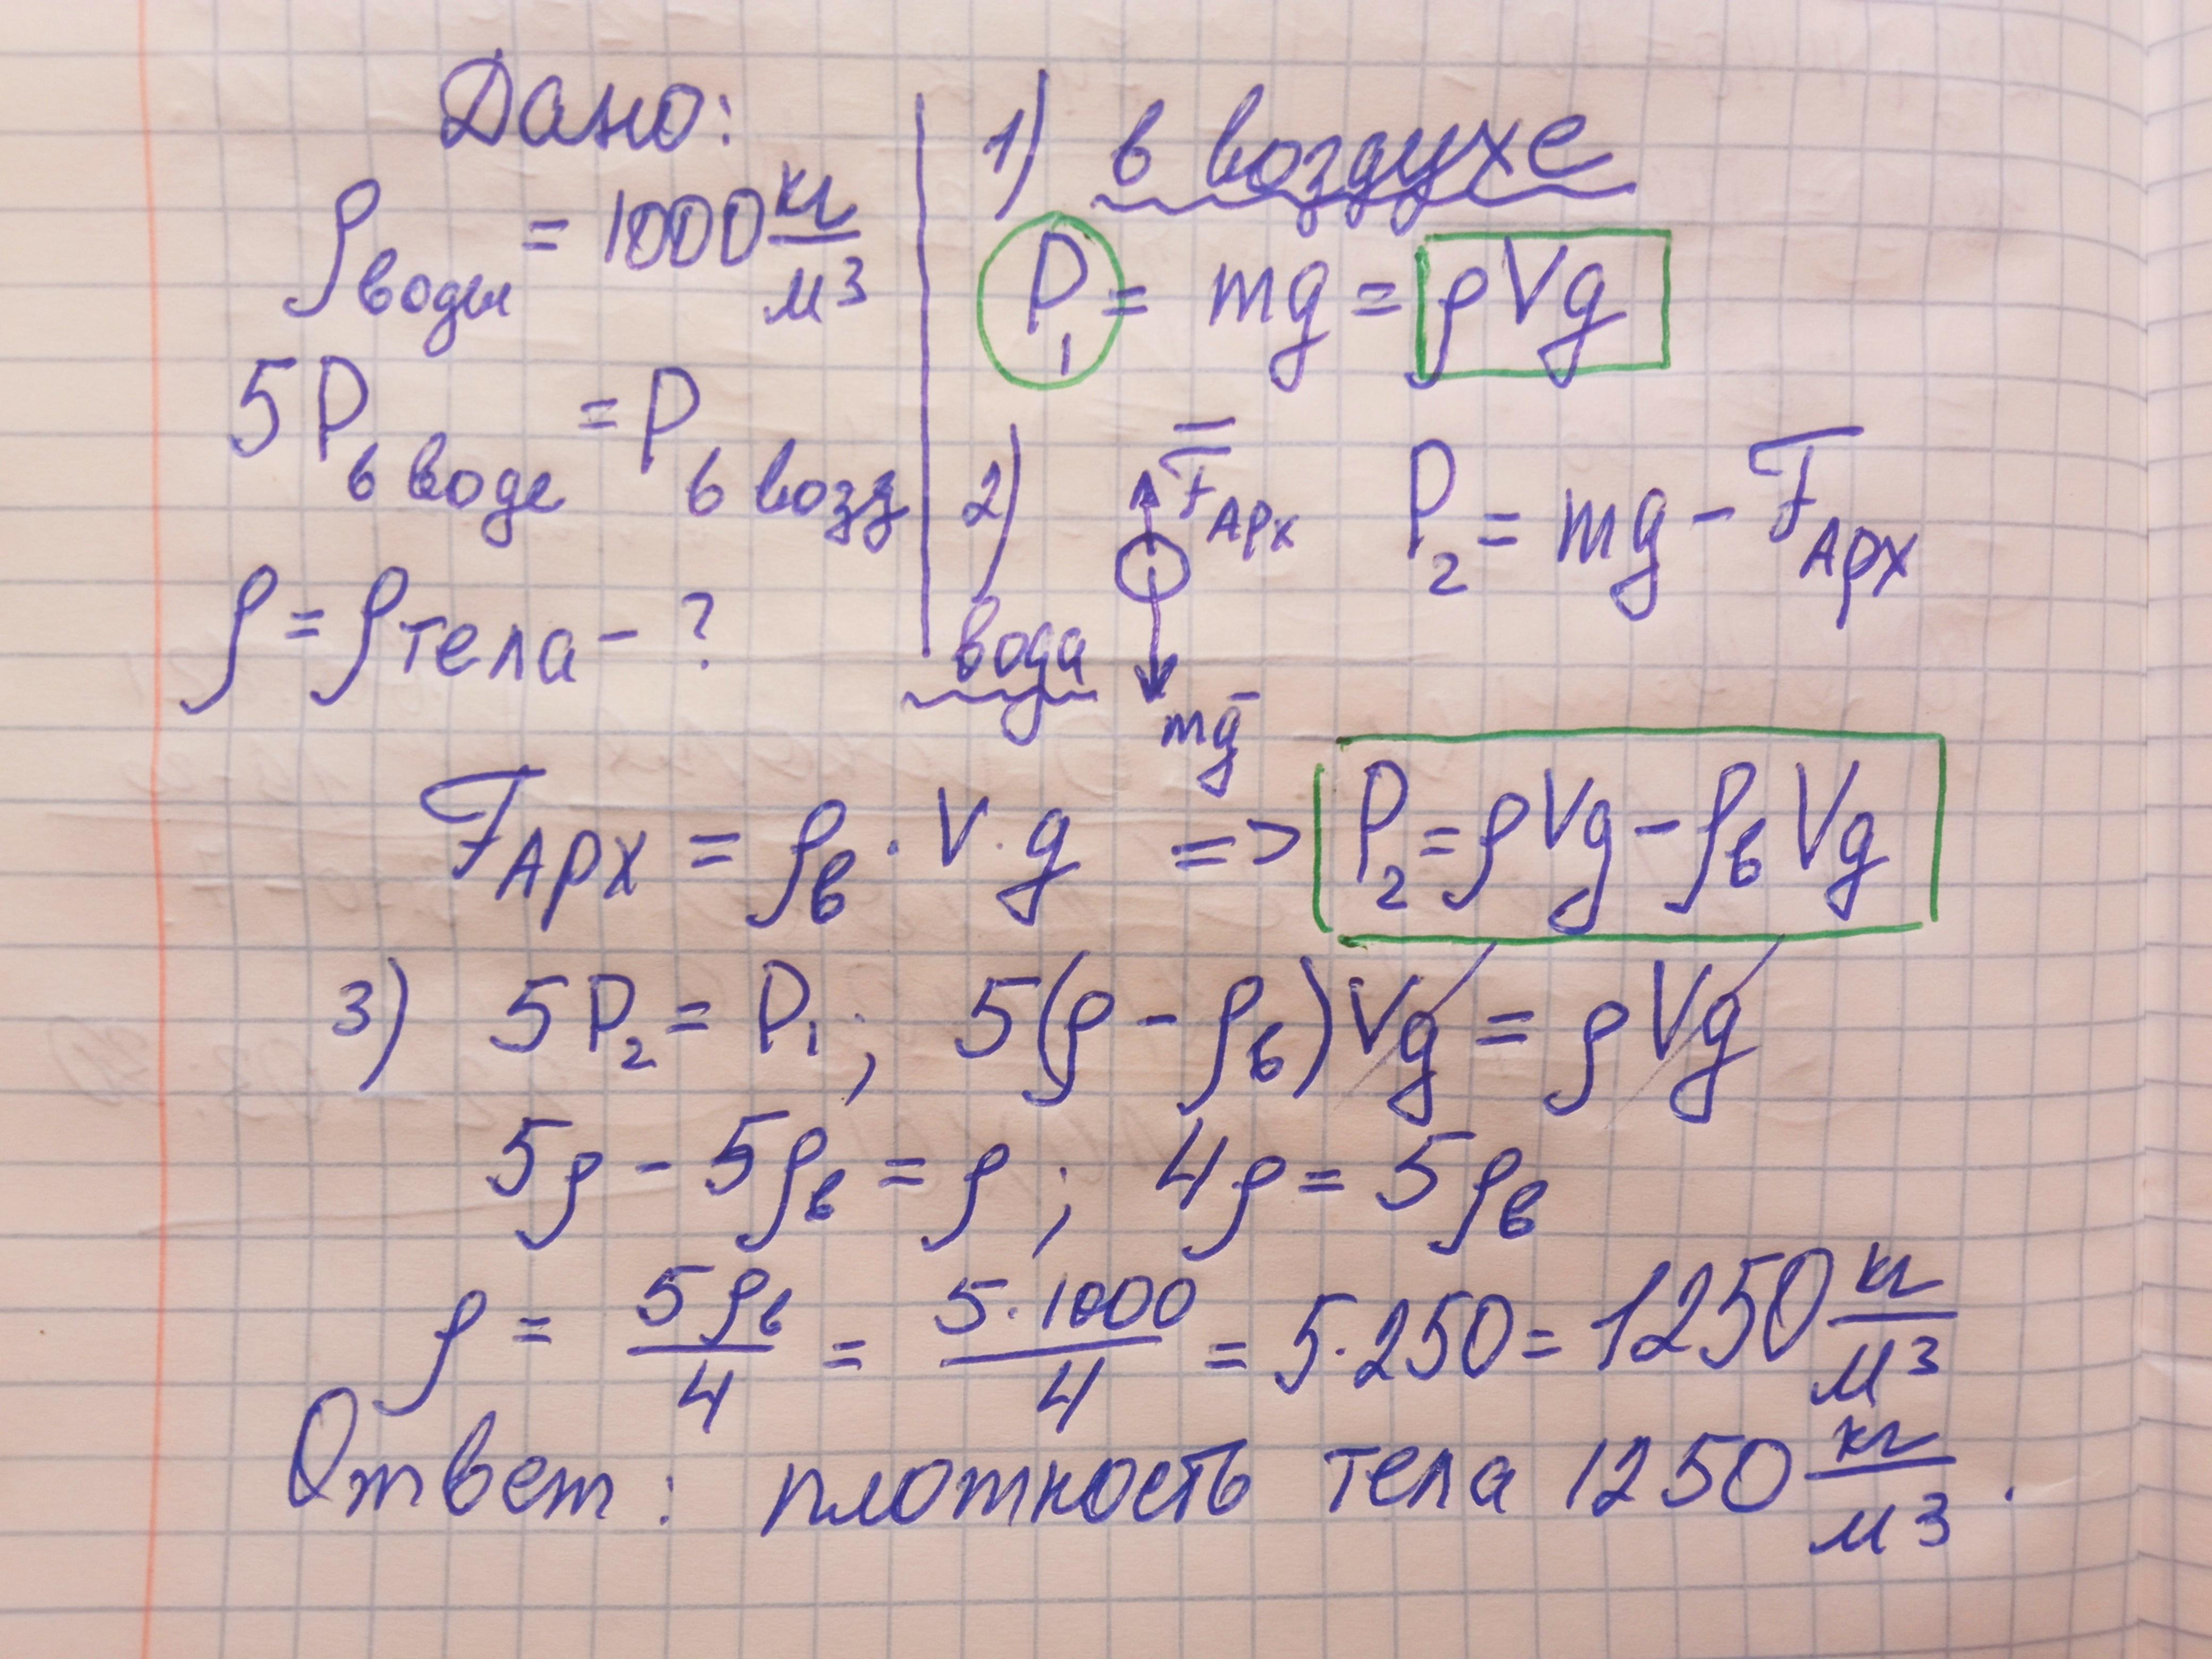 Дано:
ρводы = 1000 кг/м3
5Pв воде = Pв возд
ρ = ρтела - ?
1) в воздухе
P1 = mg = ρVg
2) F̅Арх P2 = mg - FАрх
вода
mg̅
FАрх = ρв · V · g => P2 = ρVg - ρвVg
3) 5P2 = P1; 5(ρ - ρв)Vg = ρVg
5ρ - 5ρв = ρ; 4ρ = 5ρв
ρ = 5ρв/4 = 5·1000/4 = 5·250 = 1250 кг/м3
Ответ: плотность тела 1250 кг/м3.